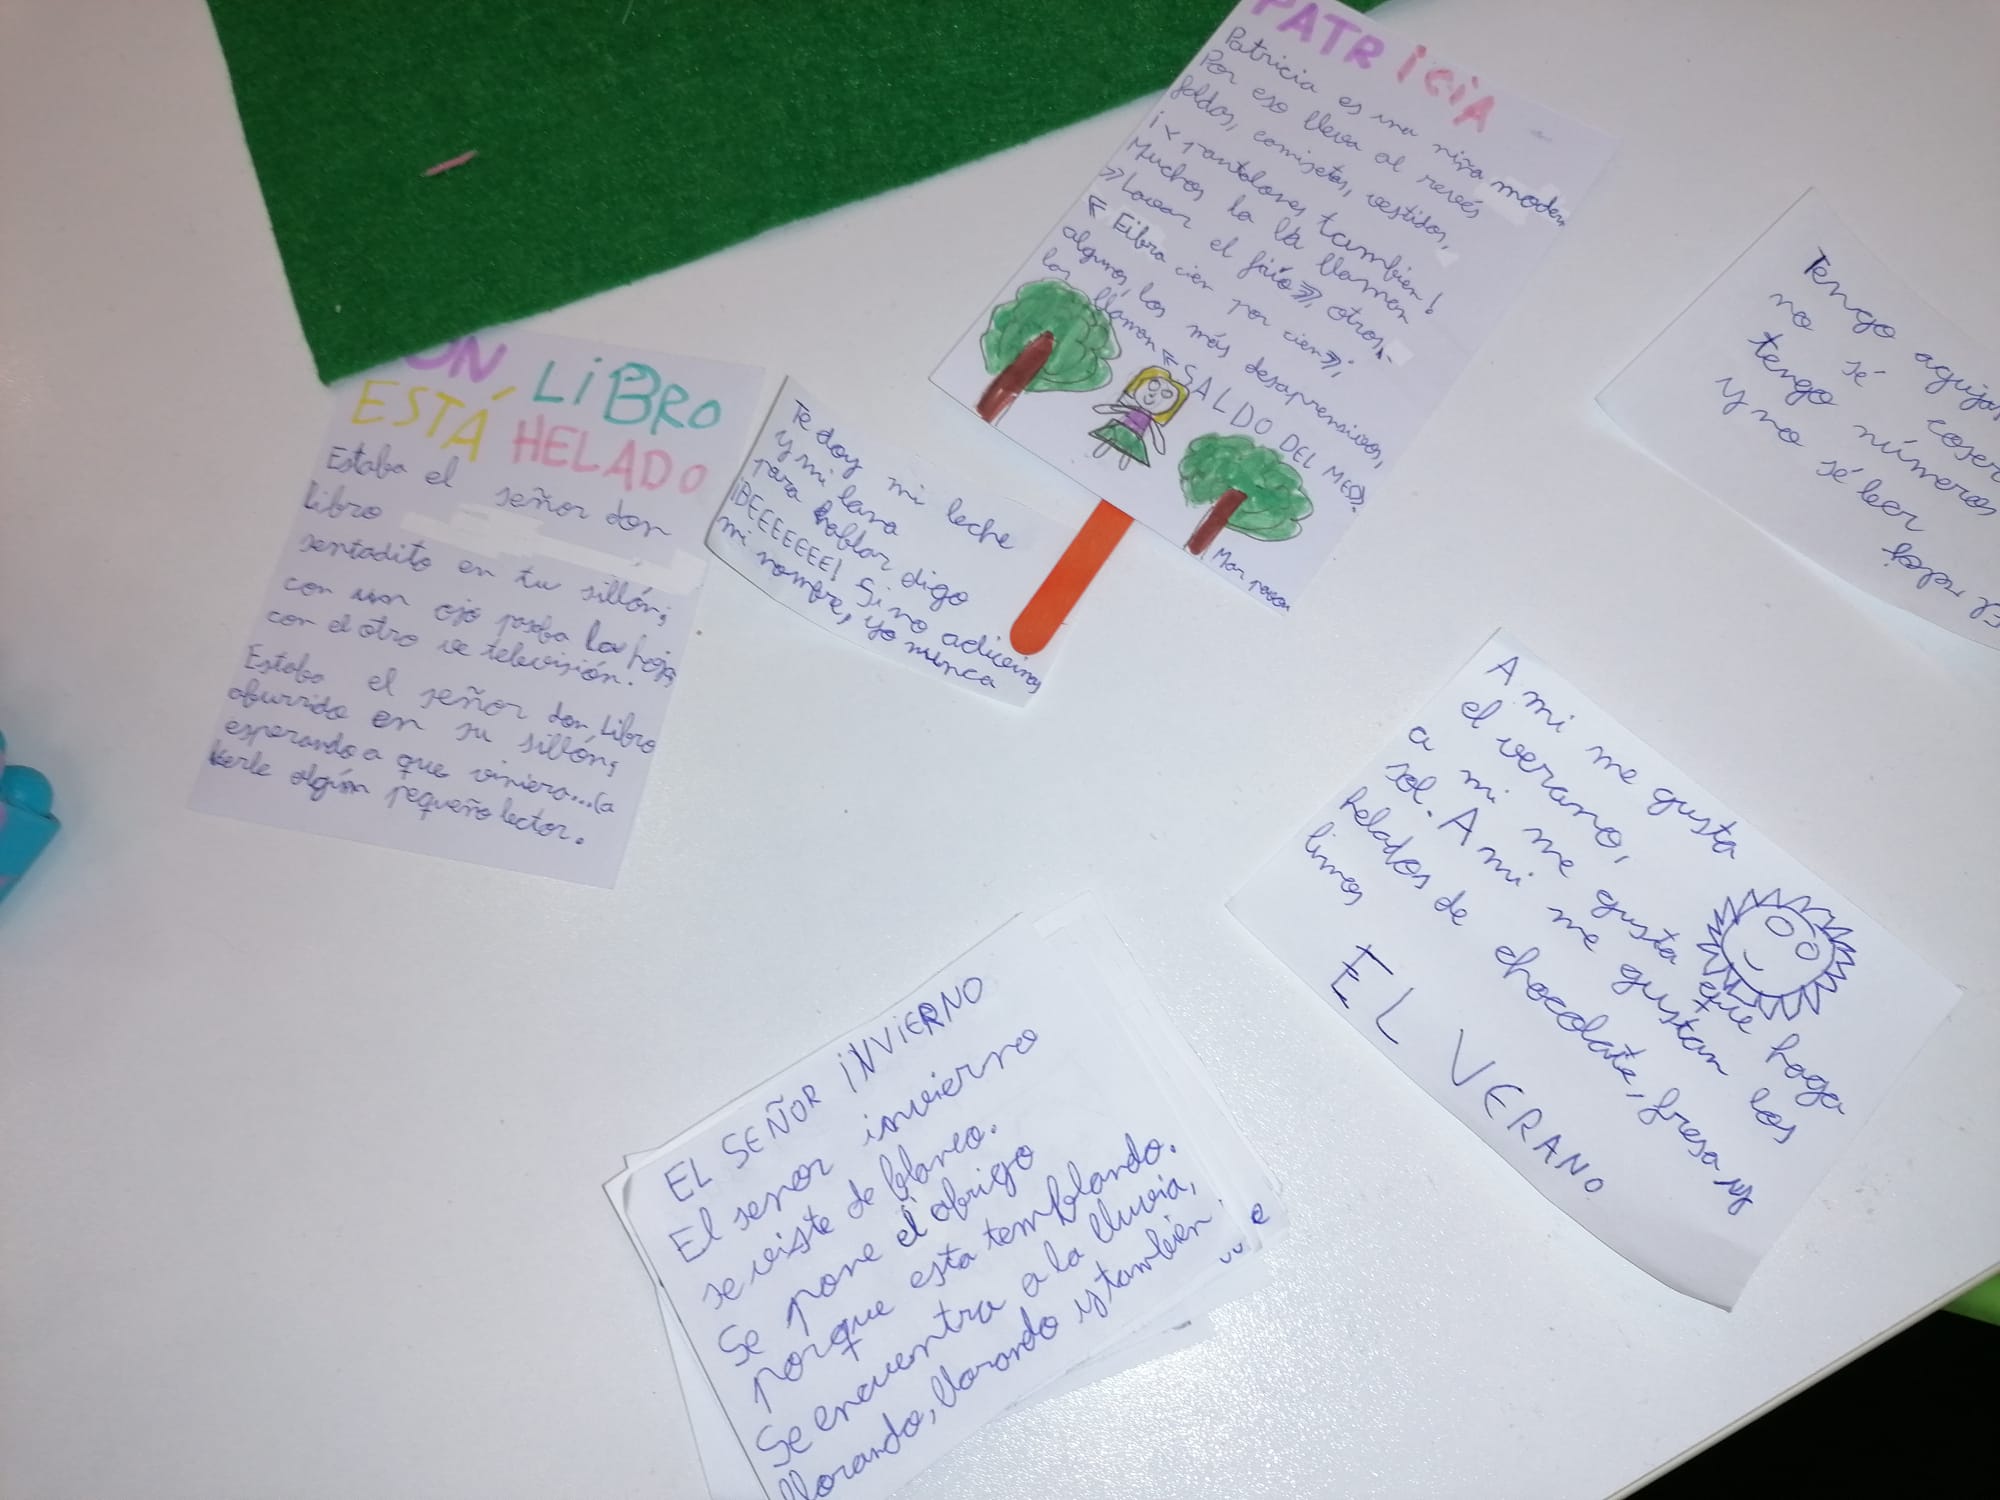 ON LIBRO
ESTÁ HELADO
Estaba el señor don
Libro
sentadito en tu sillón;
con un ojo pasba las hojas
con el otro ve televisión.
Estaba el señor don Libro
aburrido en su sillón;
esperando a que viniera...(a
leerle algún pequeño lector.
Te doy mi leche
y mi lana
para hablar digo
¡BEEEEEEE! Si no adivinas
mi nombre, yo nunca
PATRICIA
Patricia es una niña modern
Por eso lleva al revés
faldas, camisetas, vestidos,
¡< pantalones también!
Muchos la la llaman
»Lavar el frío», otros,
« Eibra cien por cien»;
algunos, los más desaprensivos,
los llaman «SALDO DEL MES».
Mar
Tengo agujas
no sé coser
tengo números
y no sé leer
El reloj
A mi me gusta
el verano,
a mi me gusta que haga
sol. A mi me gustan los
helados de chocolate, fresa y
limos
EL VERANO
EL SEÑOR INVIERNO
El senor invierno
se viste de blanco.
Se pone el abrigo
porque esta temblando.
Se encuentra a la lluvia,
llorando, llorando y también